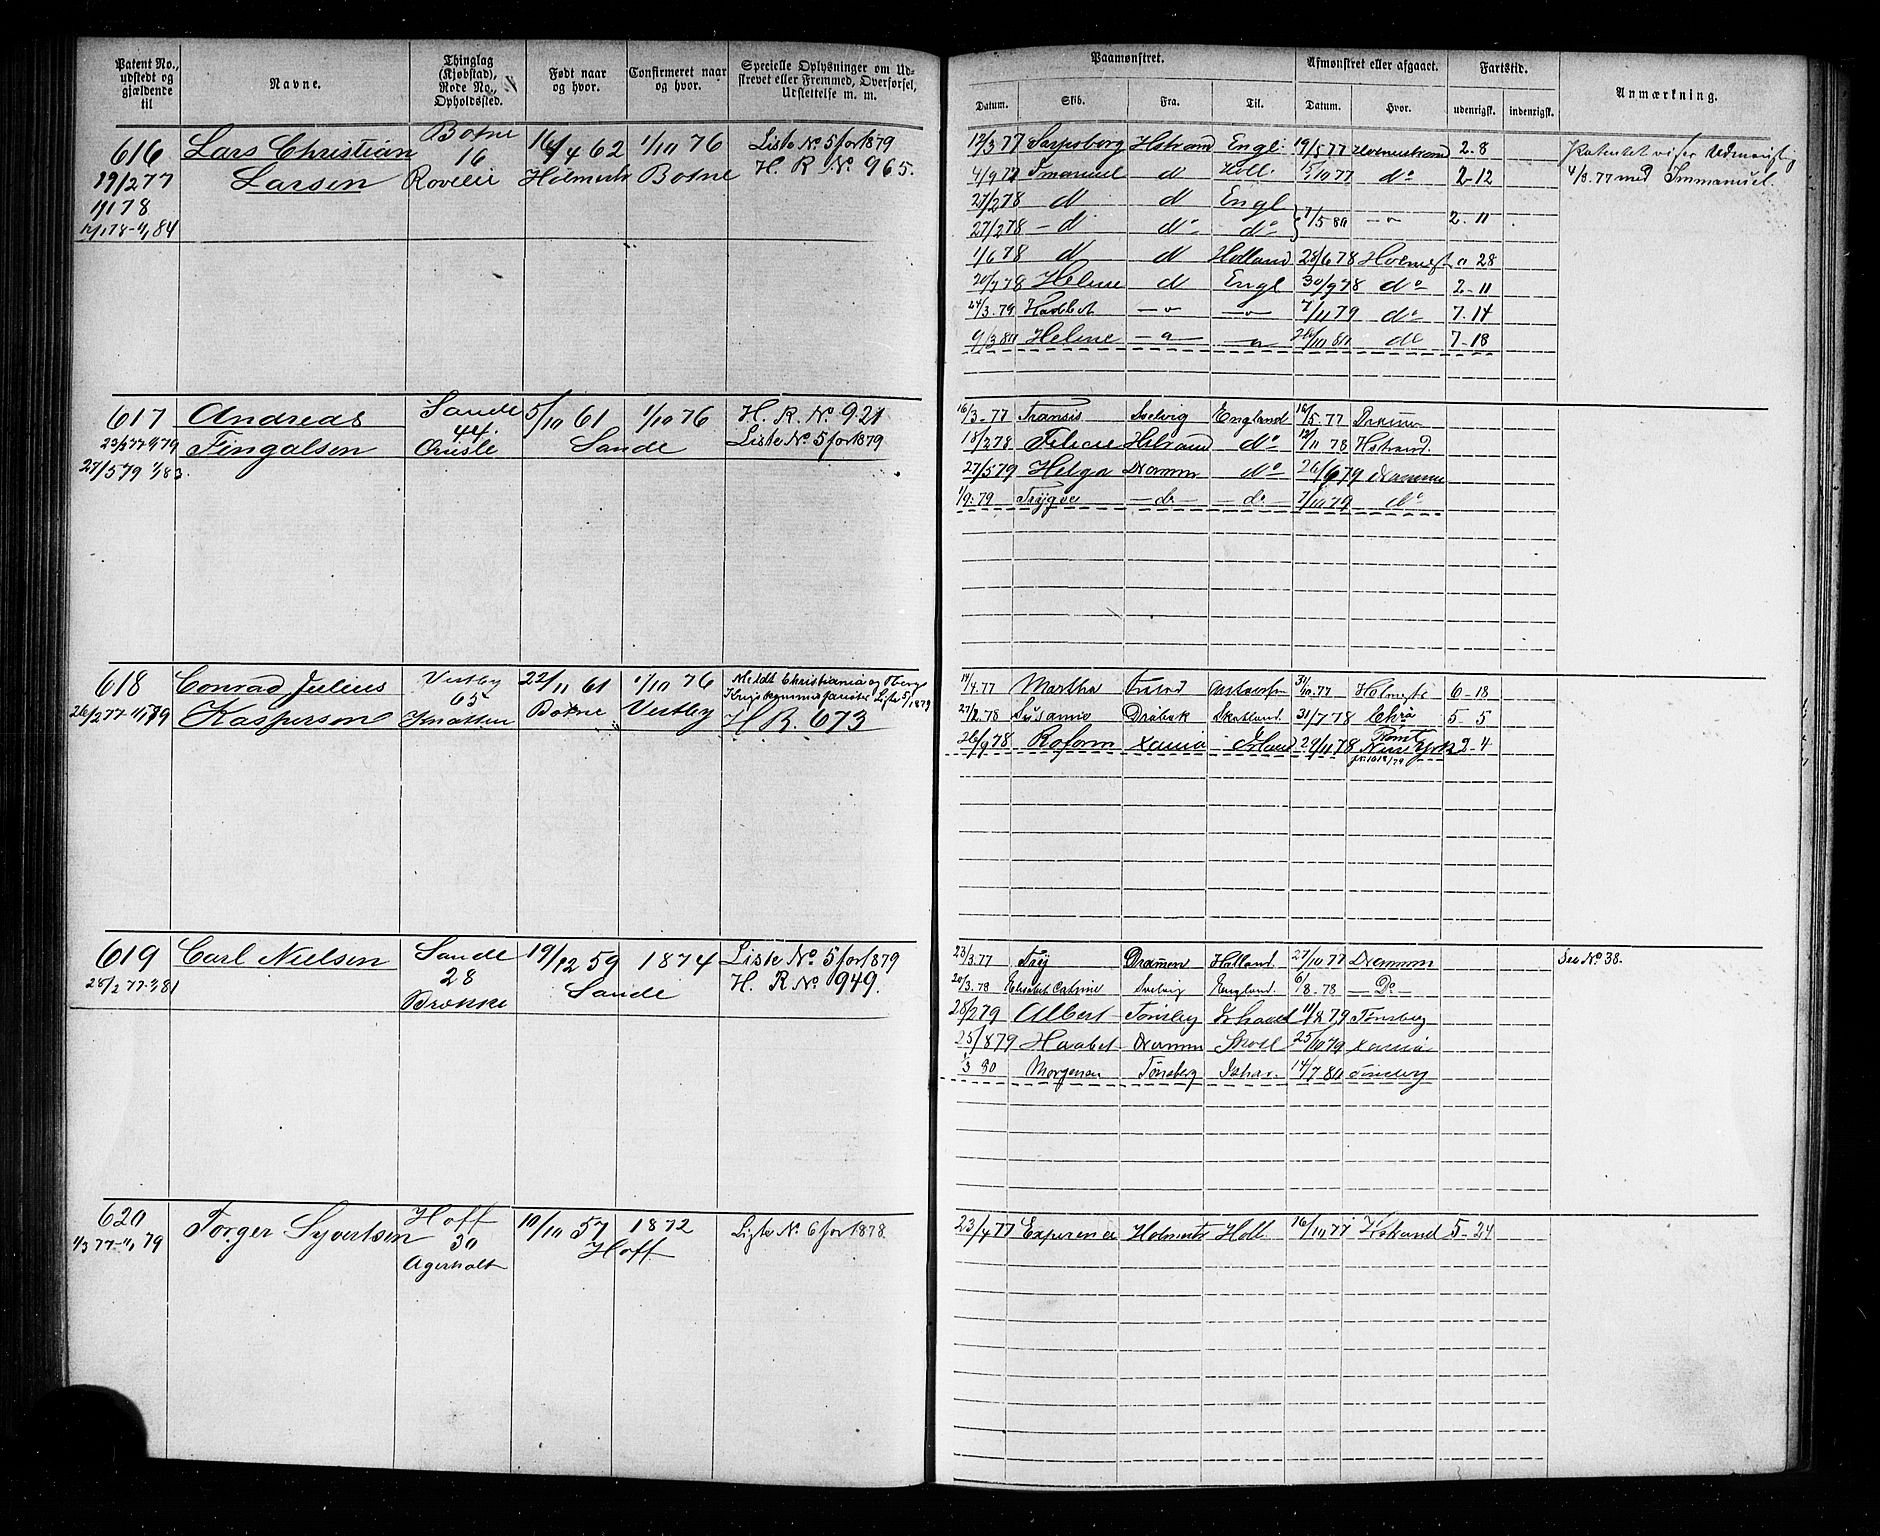 Patent No., udstedt og gjældende til
Navne.
Thinglag (Kjøbstad), Rode No., Opholdssted.
Født naar og hvor.
Confirmeret naar og hvor.
Specielle Oplysninger om Udskrevet eller Fremmed, Overførsel, Udslettelse m. m.
Paamønstret.
Afmønstret eller afgaaet.
Fartstid.
Anmærkning.
Datum. Skib. Fra. Til. Datum. Hvor. udenrigsk. indenrigsk.
616 Lars Christian Larsen
19/2 77
Botne 16
16/4 62 Holmestr
1/10 76 Botne
Liste No 5 for 1879
H. R No 965.
12/3 77 Sarpsborg Hstrand Engl. 19/5 77 Holmestrand 2-8
4/9 77 Imanuel d Holl. 10 77 do 2-12
27/2 78 d d Engl
27/2 78 - d do do 1/5 80 2-11
1/6 78 d d Holland 28/6 78 Holmest 0 28
20/7 78 Helene d Engl 30/9 78 do 2-11
24/3. 79 7/11 79 do 7-14
9/3 80 Helene 10 80 do 7-18
Patentet viser Udenrigsk
4/9. 77 med Immanuel.
617 Andreas Fingalsen
27/5 79 1/1 83.
Sande 44.
5/10 61
1/10 76
Sande
H. R. No 921
Liste No. 5 for 1879
16/3-77 Svelvig England 16/5-77 Dramm
18/2 78 Hstrand do 12/11 78 Hstrand.
27/5 79 Helga Dramm do 26/6 79 Dramm
1/9. 79 Trygve - do - - do 7/10 79 do
618 Conrad Julius Kaspersen
Vestby 65
22/11 61 Botne
1/10 76 Vestby
Meldt Christiania og
Liste 5/1879
H R. 673
14/4.77 Martha 77 Holmestr 6-18
27/2. 78 Susanne Drøbak Skotland 31/7 78 Chra 5-5
26/9 78 Reform Xania Irland 29/11 78 Rømt New York 2-4
619 Carl Nielsen
28/2 77-1/1 81
Sande 28
19/12 59
1874
Sande
Liste No. 5 for 1879
H. R No 949.
23/3.77 Drammen Holland. 27/10 77 Drammen
20/3.78 Elisabet Catrine Svelvig England. 6/8.78 - Do
28/2 79 Albert Tønsberg Ishavet 79 Tønsberg
25/8 79 Haabet Dramm Skotl 25/10 79 Xania
80 Morgenen Tønsberg Ishav. 14/7 80 Tønsberg
See No 38.
620 Torger Syvertsen
1/3 77-1/1 79
Hoff 30 Agerholt
10/10 57
1872
Hoff
Liste No. 6 for 1878.
23/4 77 Holmestr Holl 16/10 77 Hstrand 5-24